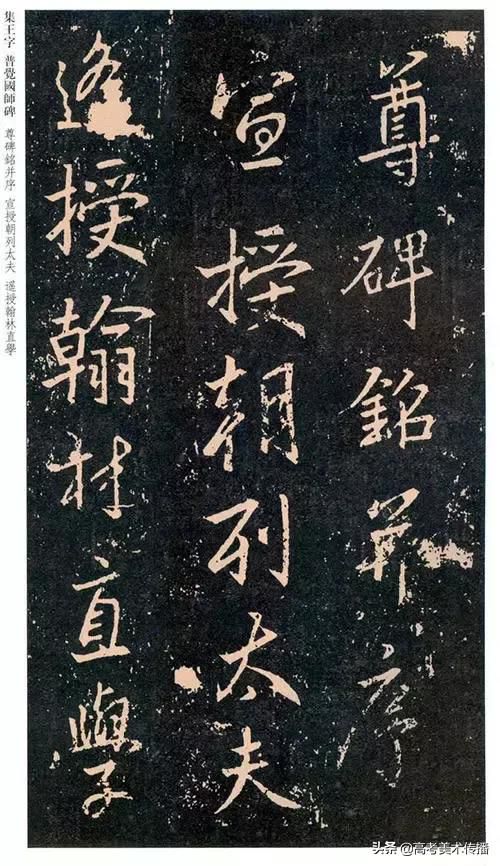 尊碑銘并序
宣授朝列太夫
遥授翰林直學
集王字 普覺國師碑 尊碑銘并序 宣授朝列太夫 遥授翰林直學
头条@高考美术传播